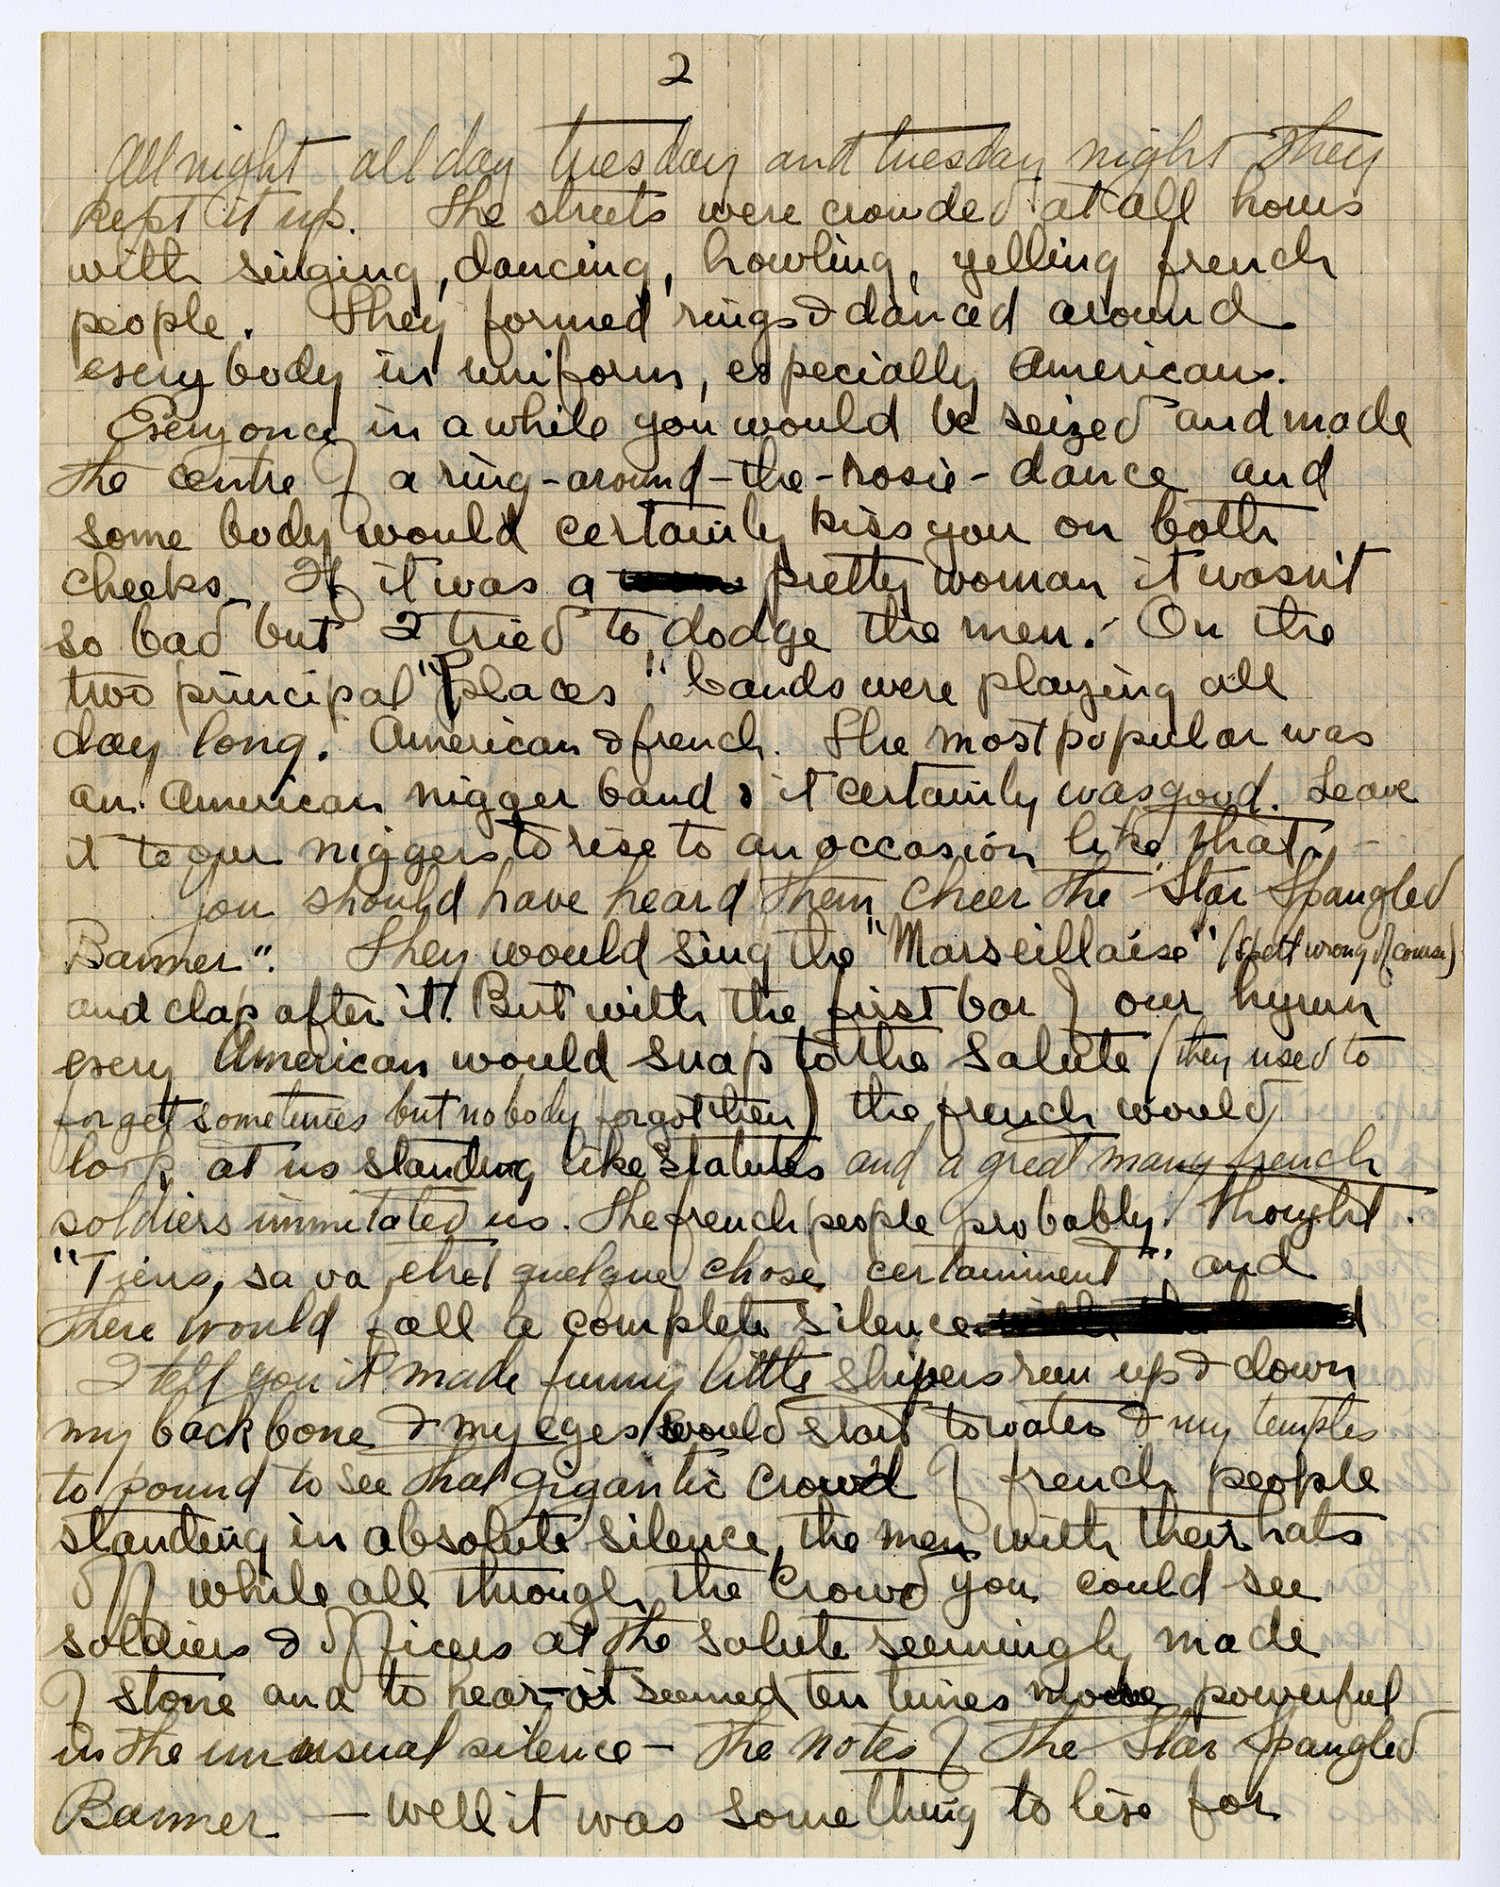 2
All night all day tuesday and tuesday night they
kept it up. The streets were crowded at all hours
with singing, dancing, howling, yelling french
people. They formed rings & danced around
every body in uniform, especially Americans.
Every once in a while you would be seized and made
the centre of a ring-around-the-rosie-dance and
some body would certainly kiss you on both
cheeks. If it was a pretty woman it wasn't
so bad but I tried to dodge the men. On the
two principal "places" bands were playing all
day long. American & french. The most popular was
an American nigger band & it certainly was good. Leave
it to our niggers to rise to an occasion like that.
You should have heard them cheer the Star Spangled
Banner". They would sing the "Marseillaise" (spelt wrong of course)
and clap after it. But with the first bar of our hymn
every American would snap to the salute (they used to
forget sometimes but nobody forgot then) the french would
look at us standing like statutes and a great many french
soldiers immitated us. The french people probably thought.
"Tiens, sa va etret quelque chose certainment", and
there would fall a complete silence
I tell you it made funny little shivers run up & down
my back bone & my eyes would start to water & my temples
to pound to see that gigantic crowd of french people
standing in absolute silence, the men with their hats
off while all through the crowd you could see
soldiers & officers at the salute seemingly made
of stone and to hear-it seemed ten times more powerful
in the unusual silence - the notes of the Star Spangled
Banner - well it was something to live for